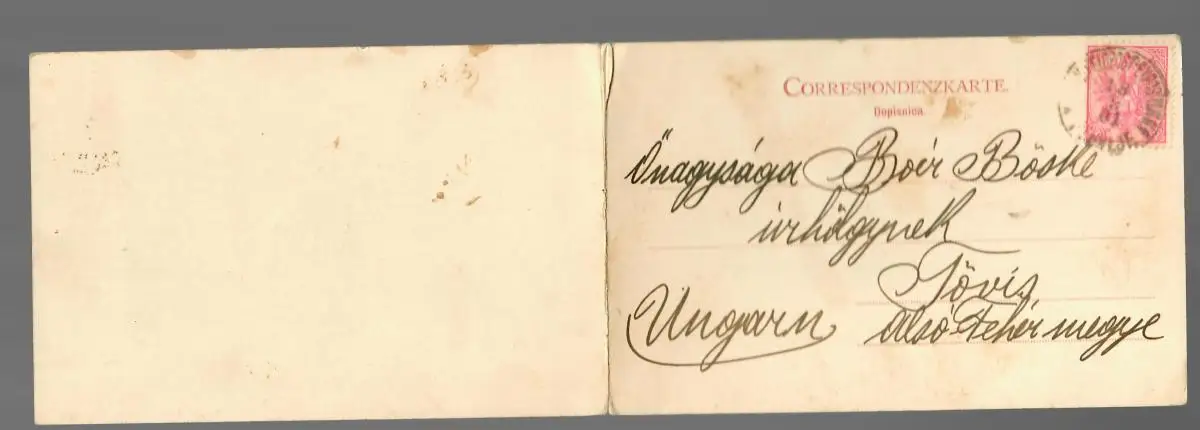 CORRESPONDENZKARTE.
Dopisnica.
Őnagysága Boér Böske
úrhölgynek
Tövis
Ungarn
Alsó-Fehér megye